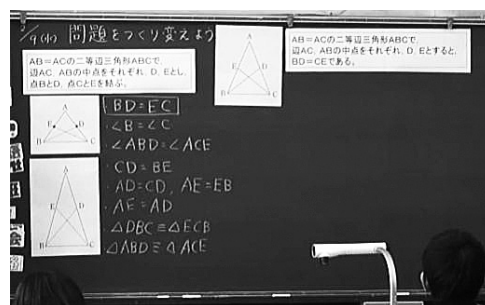 2/9(水) 問題をつくり変えよう
AB=ACの二等辺三角形ABCで、
辺AC, ABの中点をそれぞれ、D, Eとし、
点BとD, 点CとEを結ぶ。
AB=ACの二等辺三角形ABCで、
辺AC, ABの中点をそれぞれ、D, Eとすると、
BD=CEである。
A
E D
B C
A
E D
B C
A
E D
B C
BD=EC
・∠B=∠C
・∠ABD=∠ACE
CD=BE
・AD=CD, AE=EB
・AE=AD
・△DBC≡△ECB
・△ABD≡△ACE